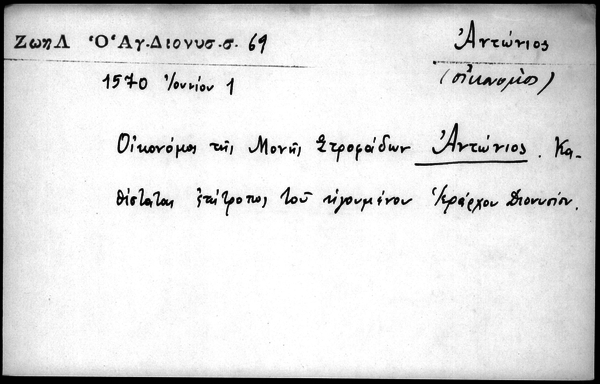 ΖωηΛ Ὁ Ἁγ. Διονυσ. σ. 69 Ἀντώνιος
1570 Ἰουνίου 1 (οἰκονομος)
Οἰκονόμος τῆς Μονῆς Στροφάδων Ἀντώνιος. Κα-
θίσταται ἐπίτροπος τοῦ ἡγουμένου Ἱεράρχου Διονυσίου.